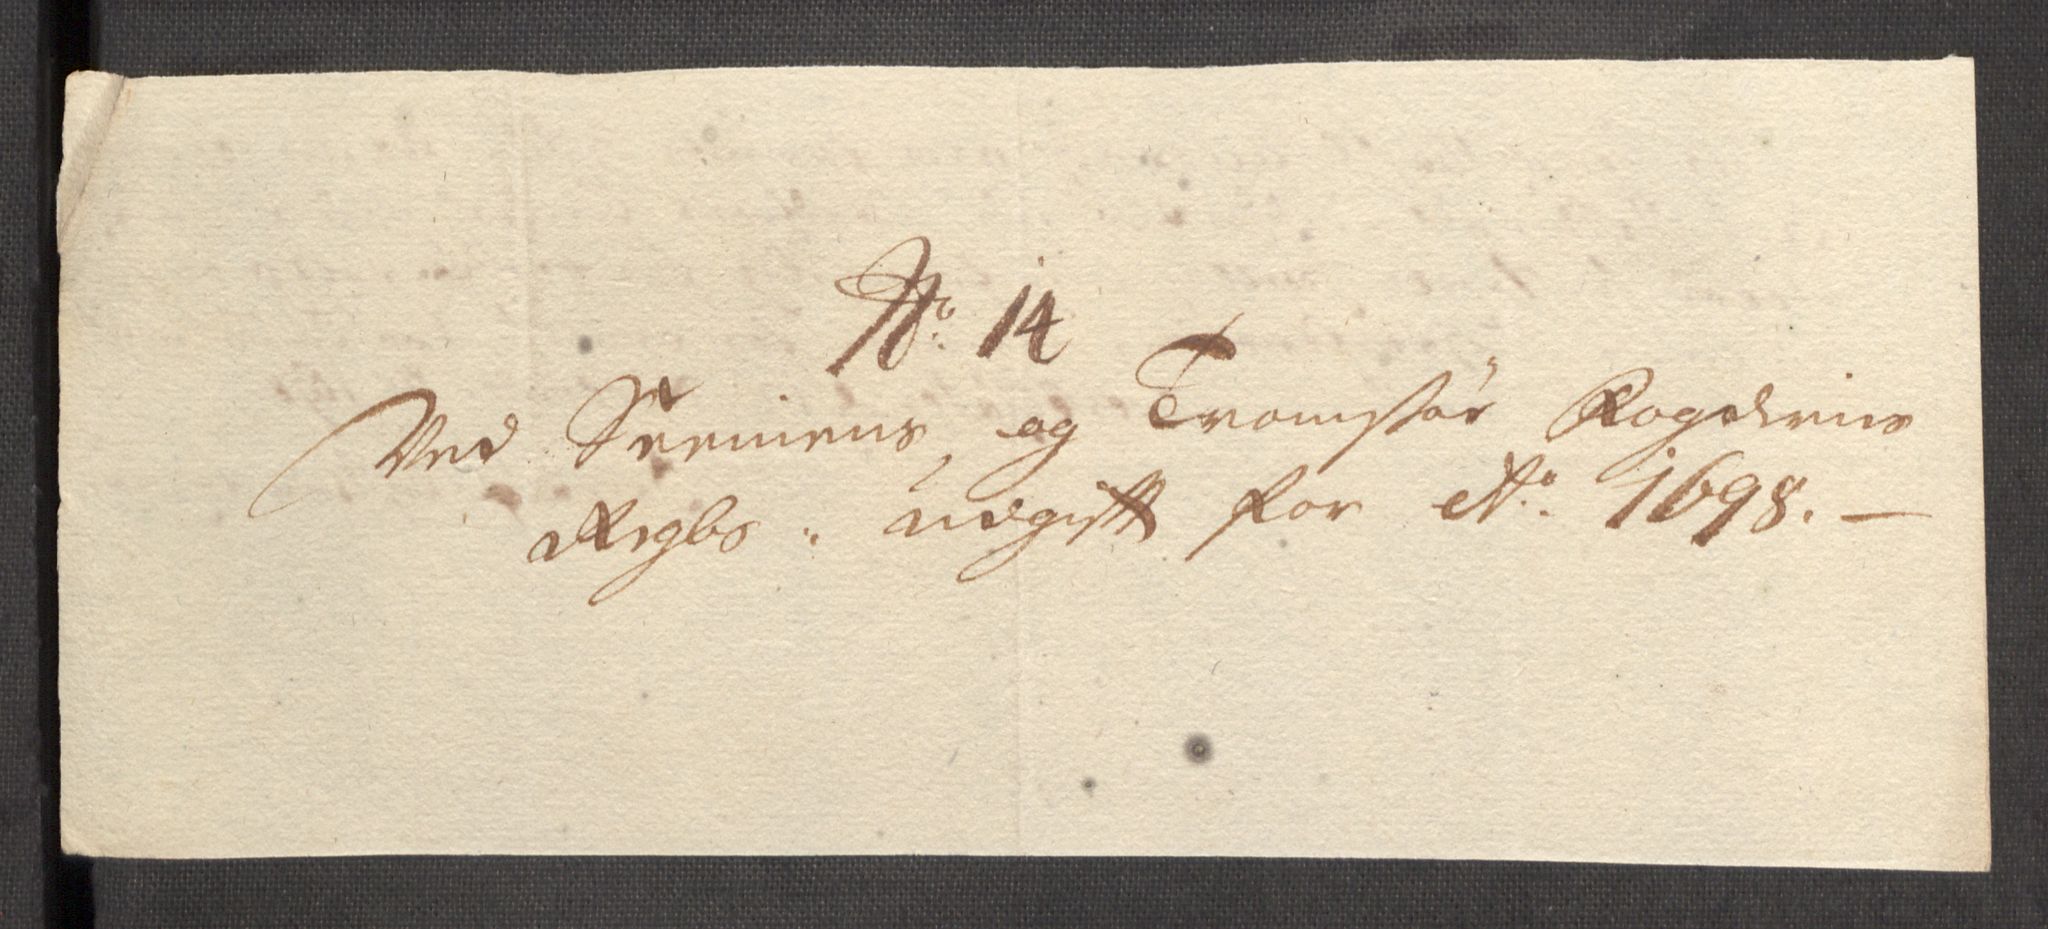 No. 14
Ved Senniens og Tromsøe Fogderies
Regbs: udgifft for Ao. 1698. —